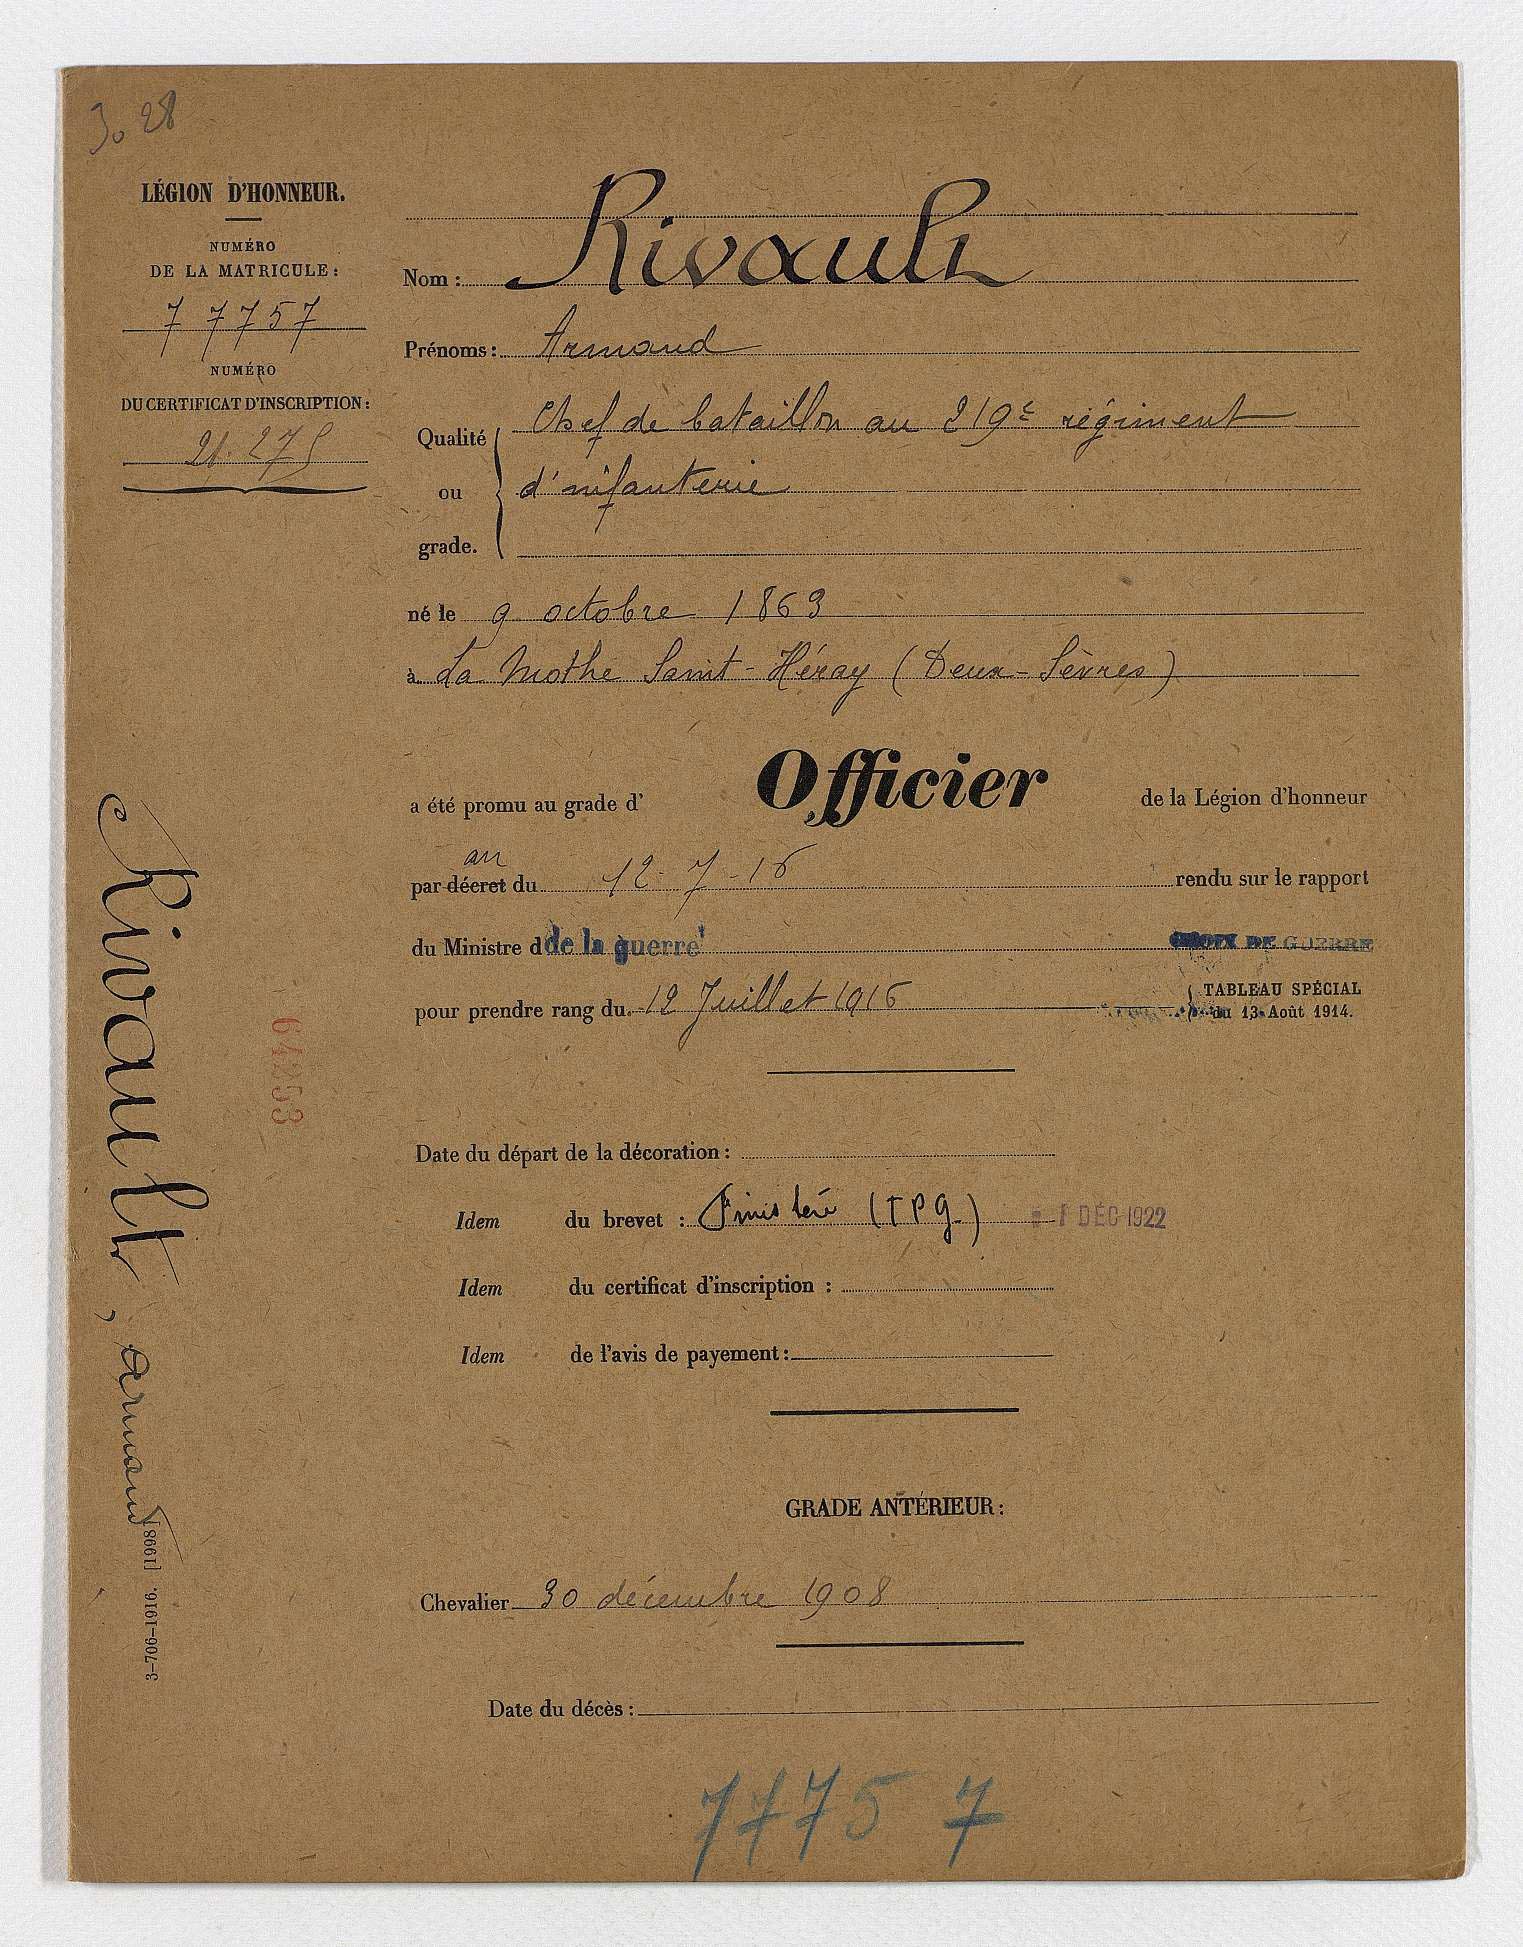 30 28
LÉGION D'HONNEUR.
NUMÉRO
DE LA MATRICULE:
77757
NUMÉRO
DU CERTIFICAT D'INSCRIPTION:
21.275
Nom: Rivault
Prénoms: Armand
Qualité ou grade. Chef de bataillon au 219e régiment
d'infanterie
né le 9 octobre 1863
à La Mothe Saint-Héray (Deux-Sèvres)
a été promu au grade d' Officier de la Légion d'honneur
au
par décret du 12-7-16 rendu sur le rapport
du Ministre d de la guerre
CROIX DE GUERRE
pour prendre rang du 12 Juillet 1916
TABLEAU SPÉCIAL
du 13 Août 1914.
Date du départ de la décoration:
Idem du brevet: Finistère (TPG) 1 DÉC 1922
Idem du certificat d'inscription:
Idem de l'avis de payement:
GRADE ANTÉRIEUR:
Chevalier 30 décembre 1908
Date du décès:
77757
Rivault, Armand
3-706-1916. [1998]